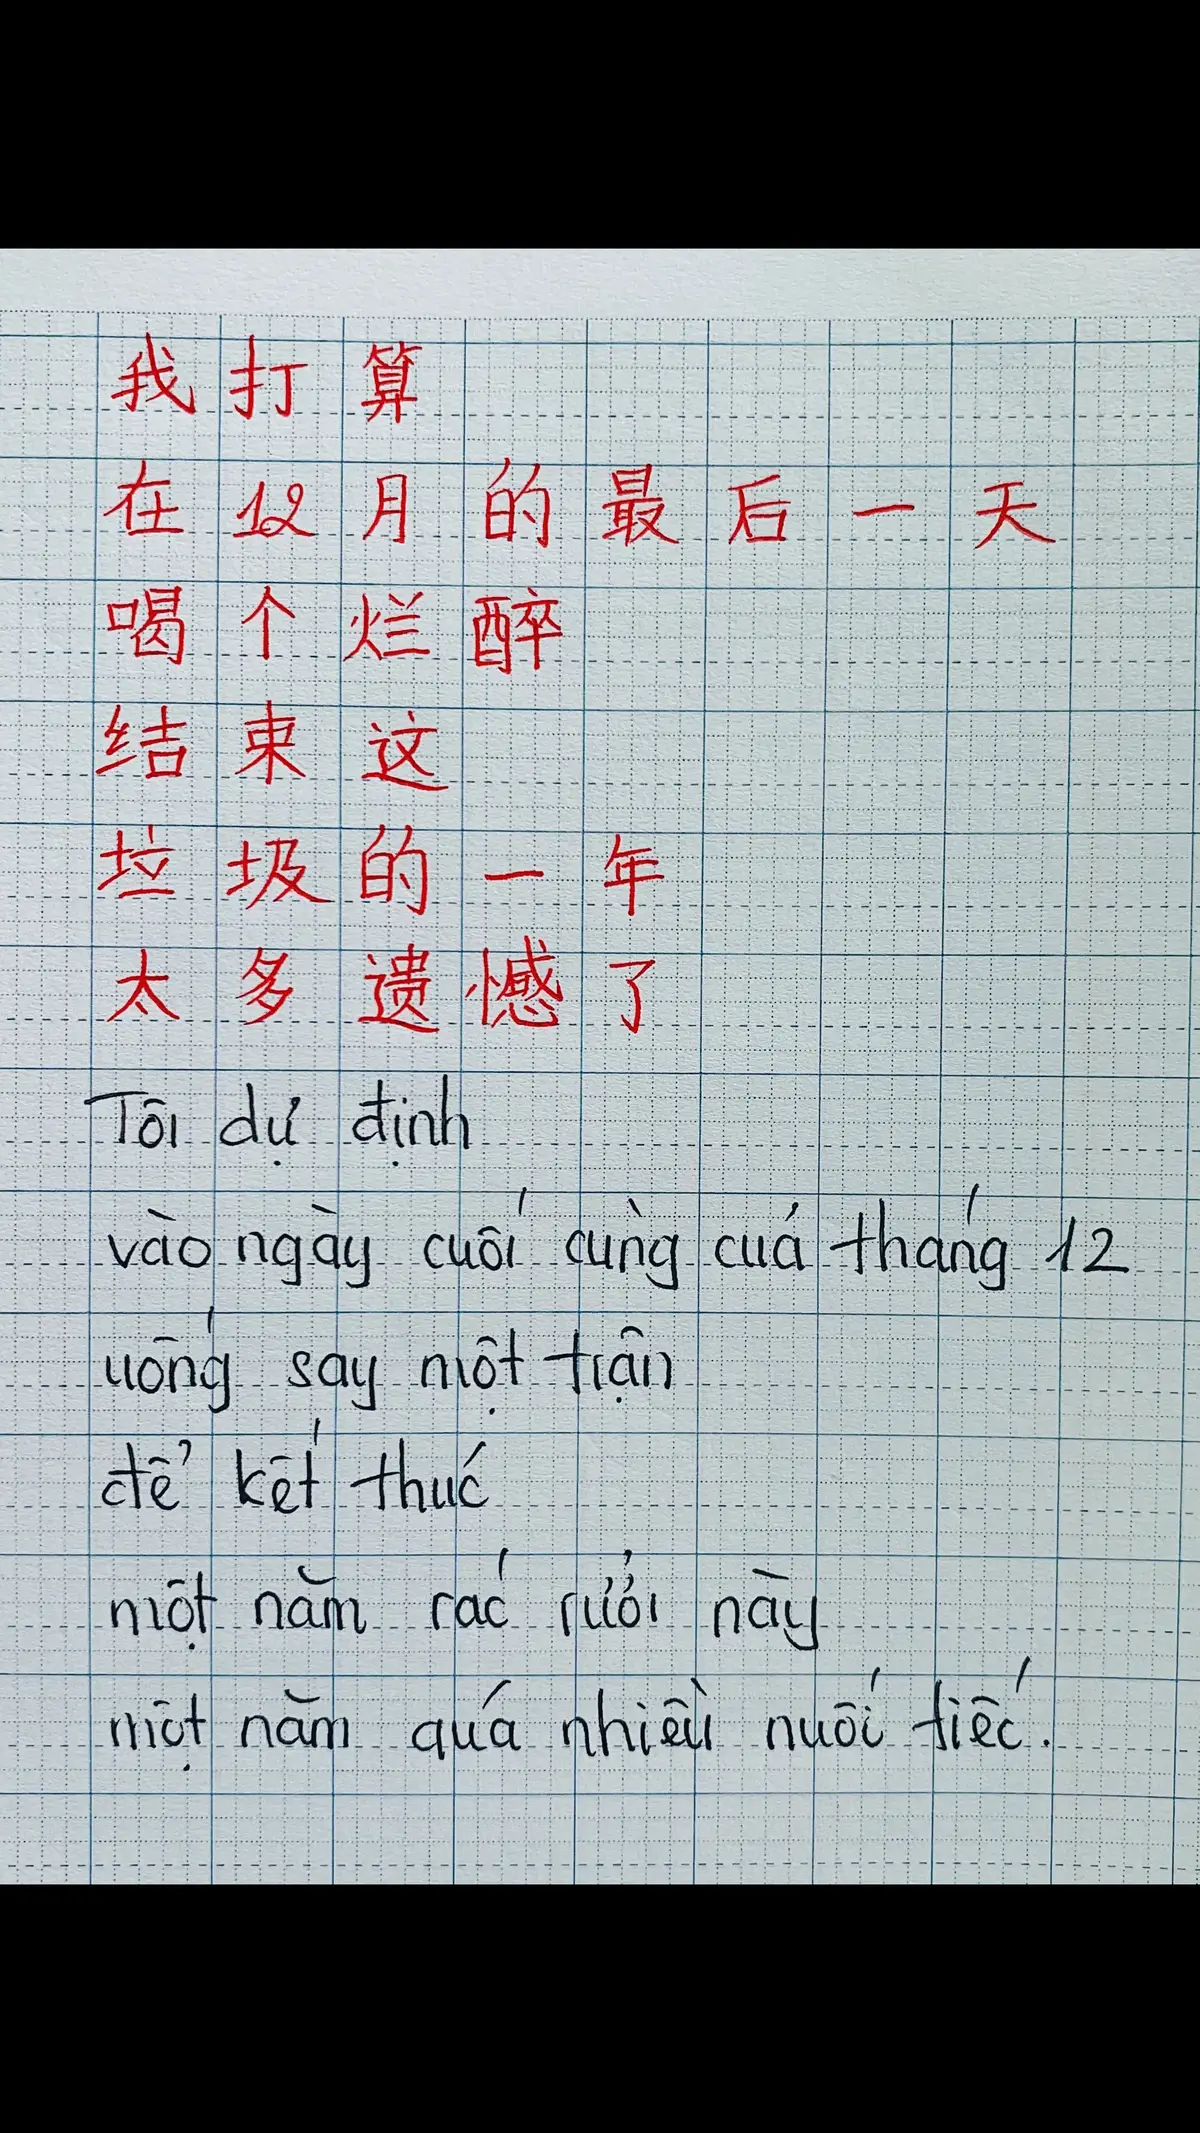 我打算
在12月的最后一天
喝个烂醉
结束这
垃圾的一年
太多遗憾了
Tôi dự định
vào ngày cuối cùng cuả tháng 12
uống say một trận
để kết thúc
một năm rác rưởi này
một năm quá nhiều nuối tiếc.